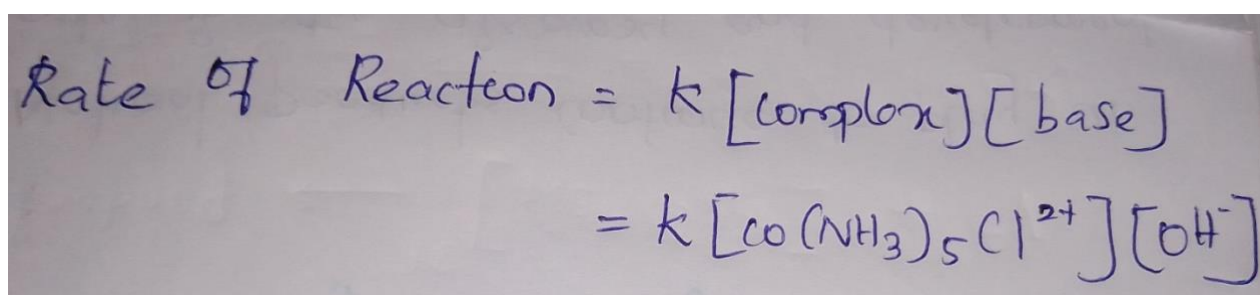 Rate of Reaction = k [complex] [base]
= k [co (NH₃)₅ Cl²⁺] [OH⁻]